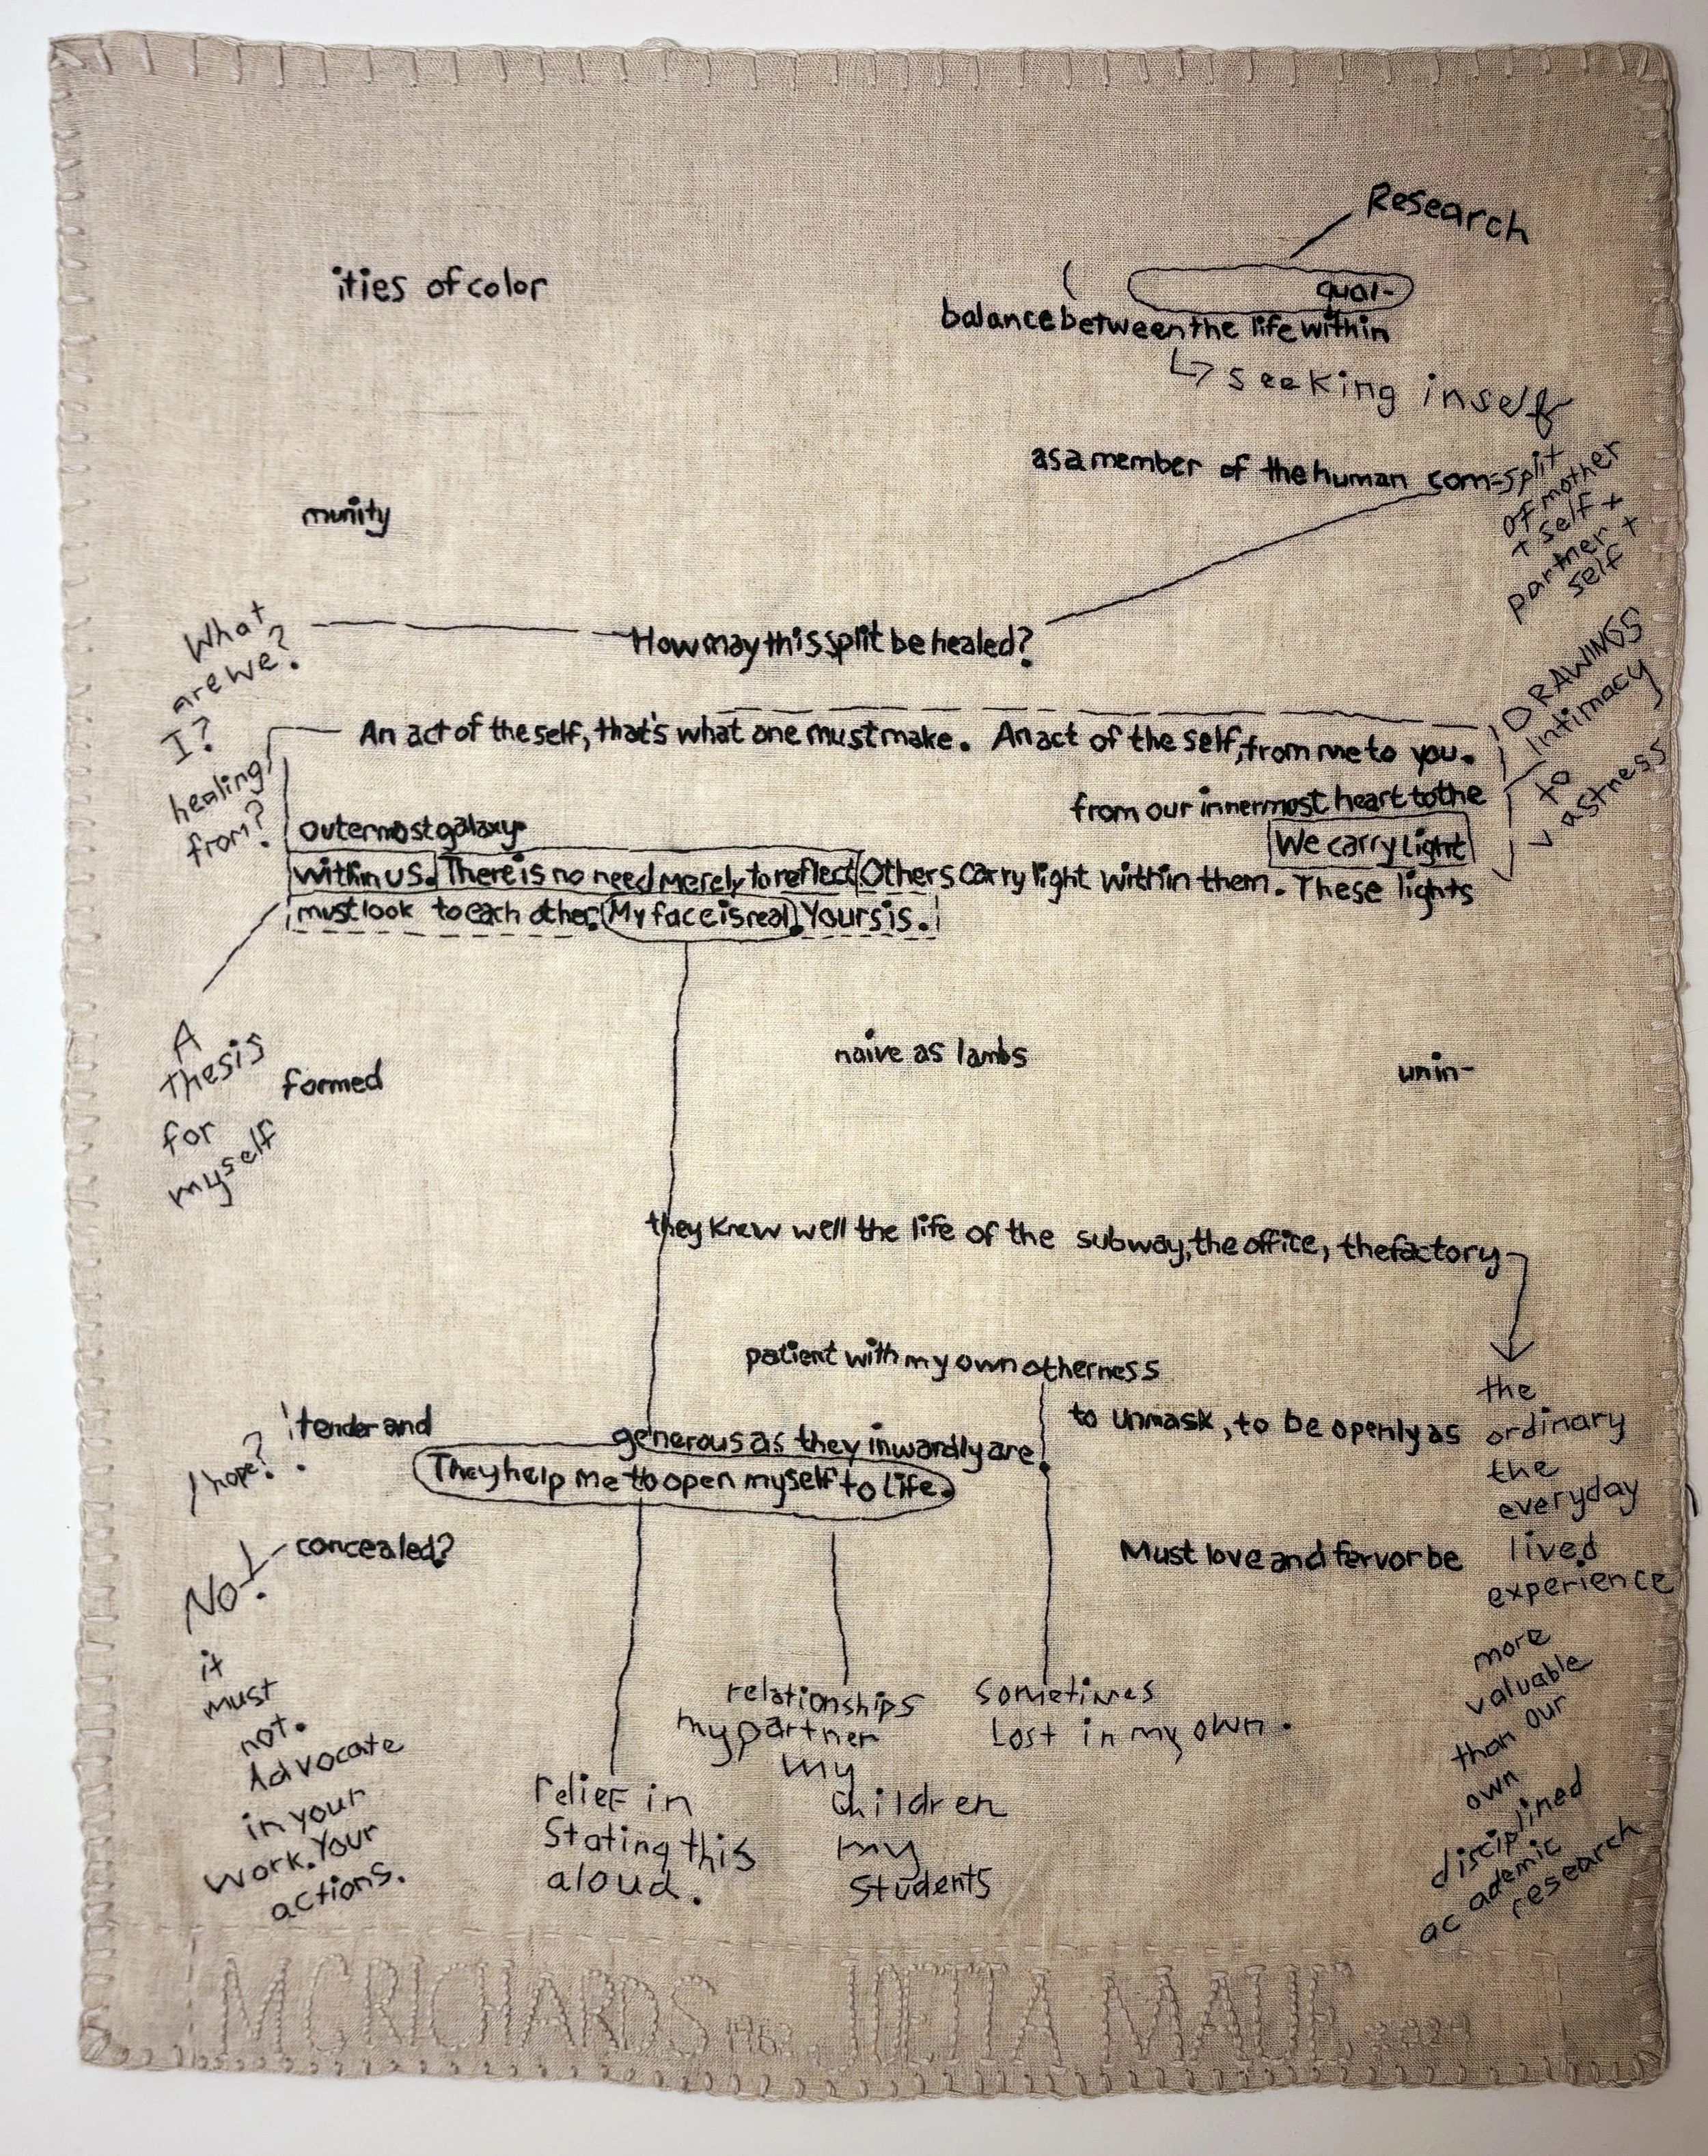 Research
ities of color
qual-
balance between the life within
↳ seeking in self
as a member of the human com=split
of mother
+ self +
partner +
self
munity
What
are we?
I?
healing
from?
How may this split be healed?
DRAWINGS
Intimacy
to
vastness
An act of the self, that's what one must make. An act of the self, from me to you.
from our innermost heart to the
outermost galaxy.
We carry light
within us. There is no need merely to reflect Others carry light within them. These lights
must look to each other. My face is real. Yours is.
A
thesis
for
myself
naive as lambs
unin-
formed
they knew well the life of the subway, the office, the factory
the
ordinary
the
everyday
lived
experience
more
valuable
than our
own
disciplined
academic
research
patient with my own otherness
to unmask, to be openly as
tender and
generous as they inwardly are.
I hope?
They help me to open myself to life.
Must love and fervor be
concealed?
No!
it
must
not.
Advocate
in your
work. Your
actions.
relief in
Stating this
aloud.
relationships
my partner
my
children
my
Students
Sometimes
Lost in my own.
MCRICHARDS 1962. JOETTA MAUE 2024